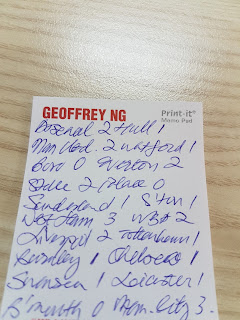 GEOFFREY NG
Print-it®
Memo Pad
Arsenal 2 Hull 1
Man Utd. 2 Watford 1
Boro 0 Everton 2
Stoke 2 C Palace 0
Sunderland 1 S'ton 1
West Ham 3 WBA 2
Liverpool 2 Tottenham 1
Burnley 1 Chelsea 1
Swansea 1 Leicester 1
B'mouth 0 Man. City 3.